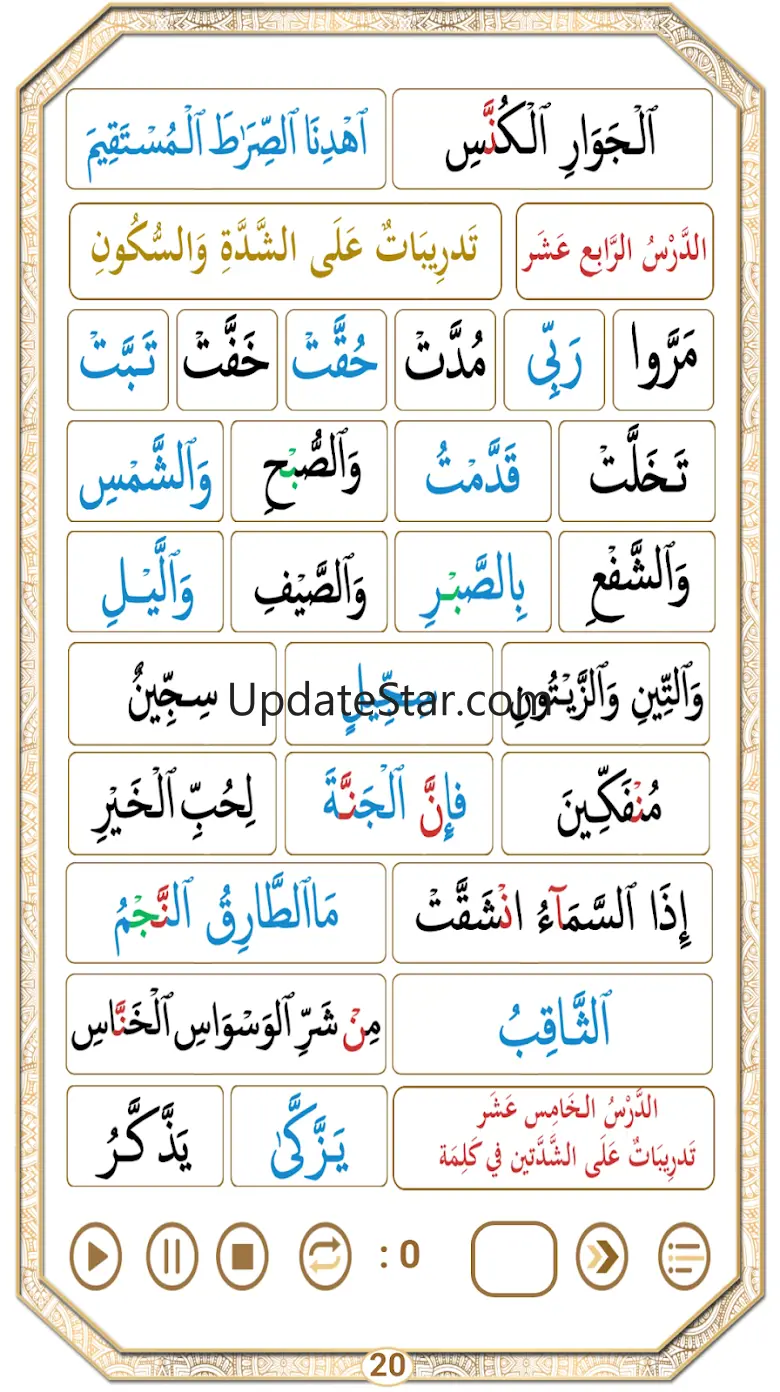 ٱلْجَوَارِ ٱلْكُنَّسِ ٱهْدِنَا ٱلصِّرَٰطَ ٱلْمُسْتَقِيمَ
الدَّرْسُ الرَّابِع عَشَر تَدرِيبَاتٌ عَلَى الشَّدَّةِ وَالسُّكُونِ
مَرَّوا رَبِّى مُدَّتْ حُقَّتْ خَفَّتْ تَبَّتْ
تَخَلَّتْ قَدَّمْتُ وَٱلصُّبْحِ وَٱلشَّمْسِ
وَٱلشَّفْعِ بِالصَّبْرِ وَٱلصَّيْفِ وَٱلَّيْلِ
وَٱلتِّينِ وَٱلزَّيْتُونِ سِجِّيلٍ سِجِّينٌ
UpdateStar.com
مُنْفَكِّينَ فَإِنَّ ٱلْجَنَّةَ لِحُبِّ ٱلْخَيْرِ
إِذَا ٱلسَّمَآءُ انْشَقَّتْ مَاالطَّارِقُ ٱلنَّجْمُ
ٱلثَّاقِبُ مِنْ شَرِّ ٱلوَسْوَاسِ ٱلْخَنَّاسِ
الدَّرْسُ الخَامِس عَشَر
تَدرِيبَاتٌ عَلَى الشَّدَّتين في كَلِمَة
يَزَّكَّىٰ يَذَّكَّرُ
: 0
20